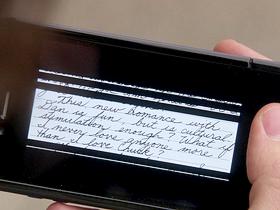 This new romance with
Dan is fun, but is cultural
stimulation enough? What if
I never love anyone more
than I love Chuck?